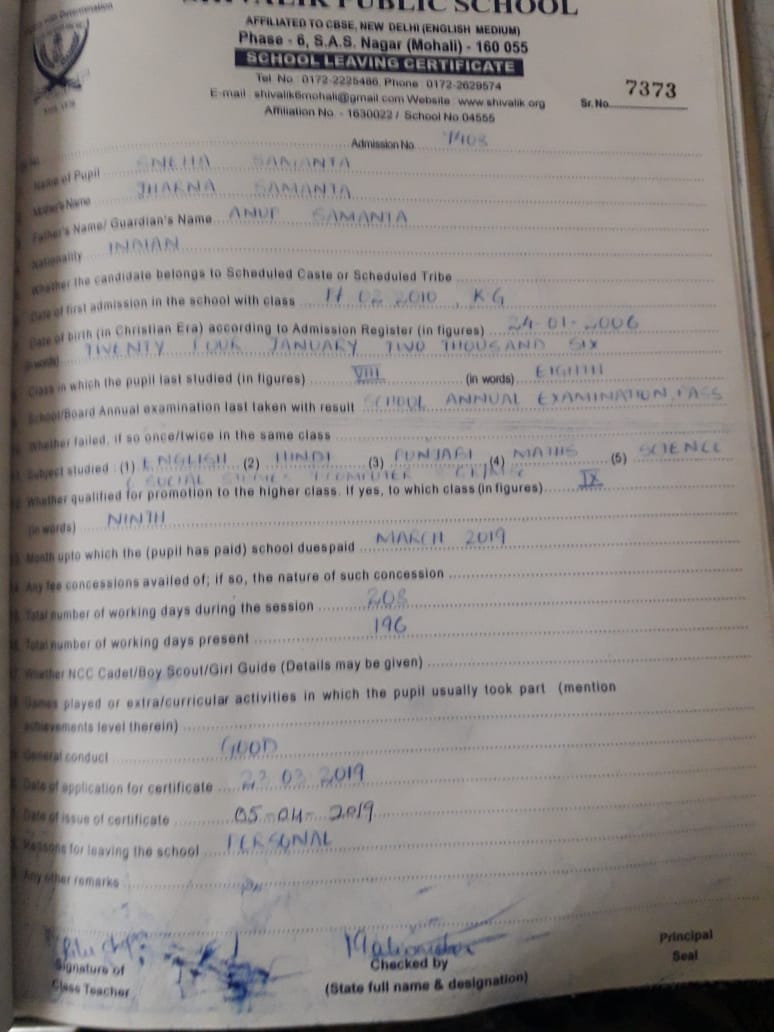 SHIVALIK PUBLIC SCHOOL
AFFILIATED TO CBSE, NEW DELHI (ENGLISH MEDIUM)
Phase - 6, S.A.S. Nagar (Mohali) - 160 055
SCHOOL LEAVING CERTIFICATE
Tel No.: 0172-2225486, Phone : 0172-2629574
E-mail : shivalik6mohali@gmail.com Website : www.shivalik.org
Sr. No. 7373
Affiliation No. - 1630022 / School No.04555
Admission No. 7408
Name of Pupil SNEHA SAMANTA
Mother's Name JHARNA SAMANTA
Father's Name/ Guardian's Name ANUP SAMANTA
Nationality INDIAN
Whether the candidate belongs to Scheduled Caste or Scheduled Tribe
Date of first admission in the school with class 02 2010, KG
Date of birth (in Christian Era) according to Admission Register (in figures) 24-01-2006
(in words) TWENTY FOUR JANUARY TWO THOUSAND SIX
Class in which the pupil last studied (in figures) VIII (in words) EIGHTH
School/Board Annual examination last taken with result SCHOOL ANNUAL EXAMINATION, PASS
Whether failed, if so once/twice in the same class
Subject studied : (1) ENGLISH (2) HINDI (3) PUNJABI (4) MATHS (5) SCIENCE
SOCIAL COMPUTER
Whether qualified for promotion to the higher class. If yes, to which class (in figures) IX
(in words) NINTH
Month upto which the (pupil has paid) school duespaid MARCH 2019
Any fee concessions availed of; if so, the nature of such concession
Total number of working days during the session 208
Total number of working days present 196
Whether NCC Cadet/Boy Scout/Girl Guide (Details may be given)
Games played or extra/curricular activities in which the pupil usually took part (mention
achievements level therein)
General conduct GOOD
Date of application for certificate 23 03 2019
Date of issue of certificate 05-04-2019
Reasons for leaving the school PERSONAL
Any other remarks
Signature of
Class Teacher
Checked by
(State full name & designation)
Principal
Seal